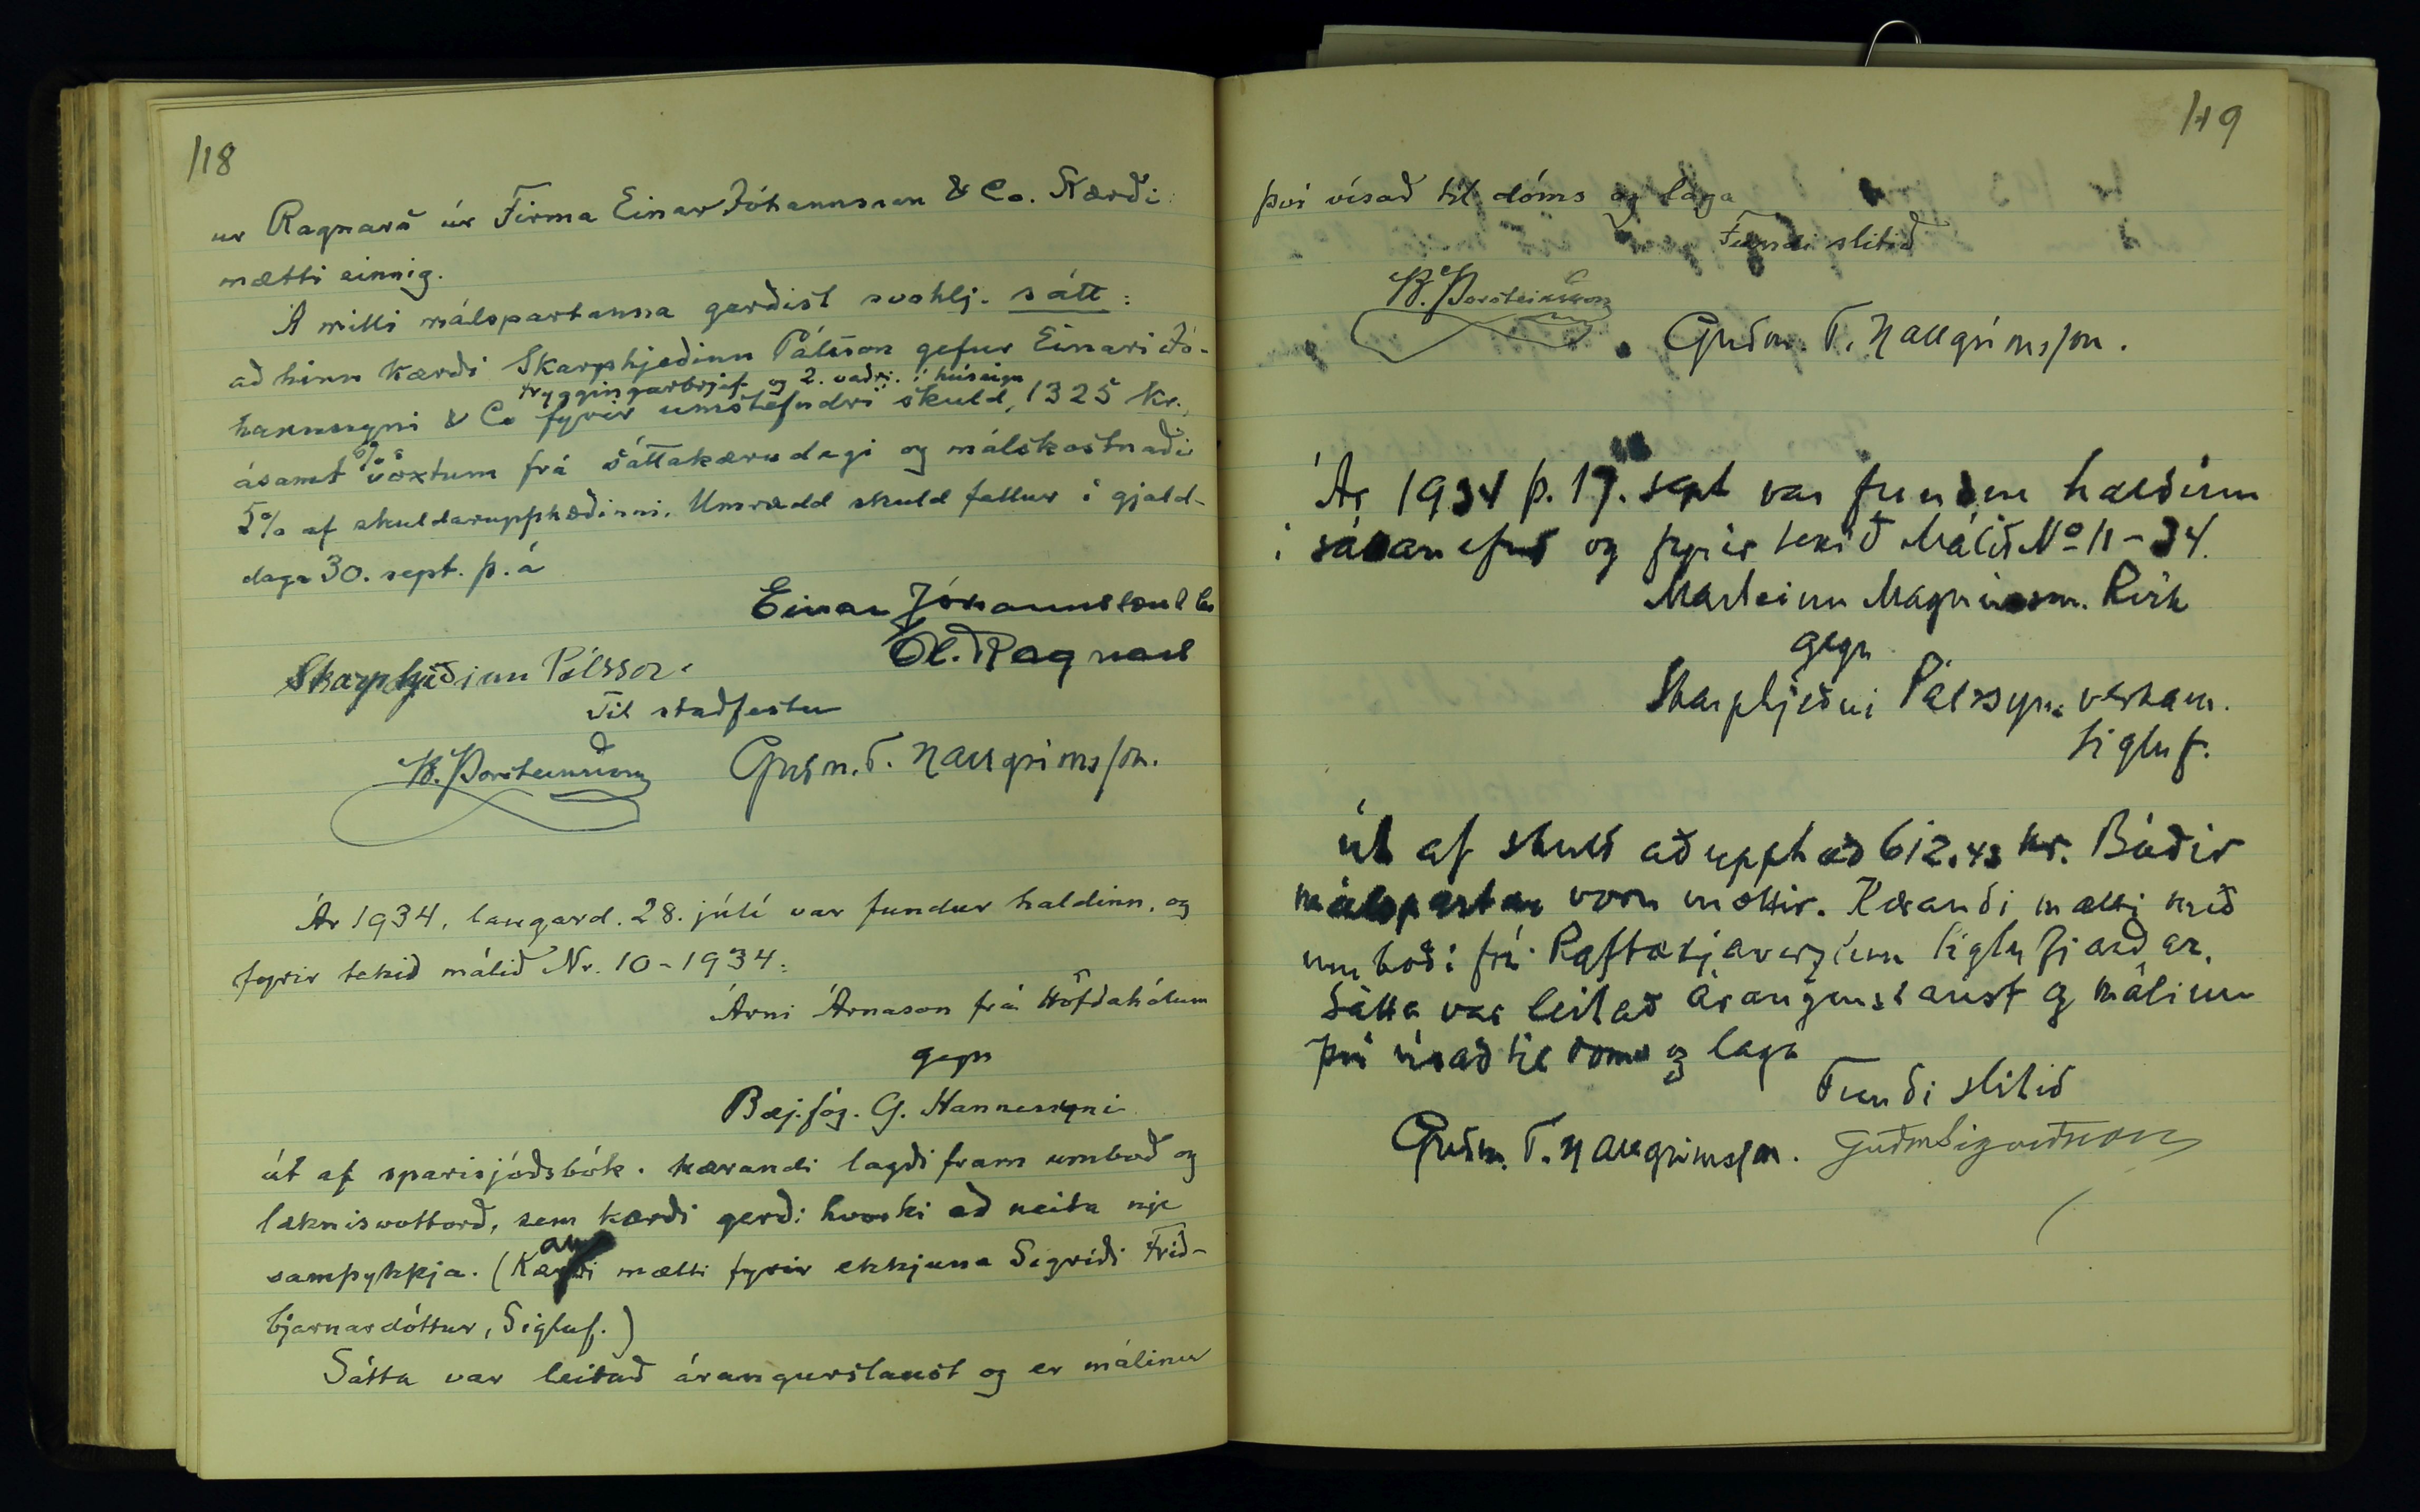 118
ur Ragnars úr Firma Einar Jóhannsson & Co. Kærði
mætti einnig.
Á milli málspartanna gerðist svohlj. sátt:
að hinn kærði Skarphjeðinn Pálsson gefur Einari Jó-
tryggingarbrjef og 2. veðr. í húseign
hannssyni & Co fyrir umstefndri skuld, 1325 kr.,
ásamt 6% vöxtum frá sáttakærudegi og málskostnaði
5% af skuldarupphæðinni. Umrædd skuld fellur í gjald-
daga 30. sept. þ.á
Einar Jóhannsson & Co
Ól. Ragnars
Skarphjeðinn Pálsson.
Til staðfestu
B. Þorsteinsson
Guðm. T. Hallgrímsson.
Ár 1934, laugard. 28. júlí var fundur haldinn, og
fyrir tekið málið Nr. 10-1934:
Árni Árnason frá Höfðahólum
gegn
Bæj.fóg. G. Hannessyni
út af sparisjóðsbók. Kærandi lagði fram umboð og
læknisvottorð, sem kærði gerði hvorki að neita nje
samþykkja. (Kærandi mætti fyrir ekkjuna Sigríði Frið-
bjarnardóttur, Sigluf.)
Sátta var leitað árangurslaust og er málinu
119
því vísað til dóms og laga
Fundi slitið
B. Þorsteinsson
Guðm. T. Hallgrímsson.
Ár 1934 þ. 17. sept var fundur haldinn
í sáttanefnd og fyrir tekið Málið No 11-34.
Marteinn Magnússon. Rvík
gegn
Skarphjeðni Pálssyni verkam.
Sigluf.
út af skuld að upphæð 612.43 kr. Báðir
málspartar voru mættir. Kærandi mætti með
umboði frá Raftækjaverzlun Siglufjarðar.
Sátta var leitað árangurslaust og málinu
því vísað til doms og laga
Fundi slitið
Guðm. T. Hallgrímsson.